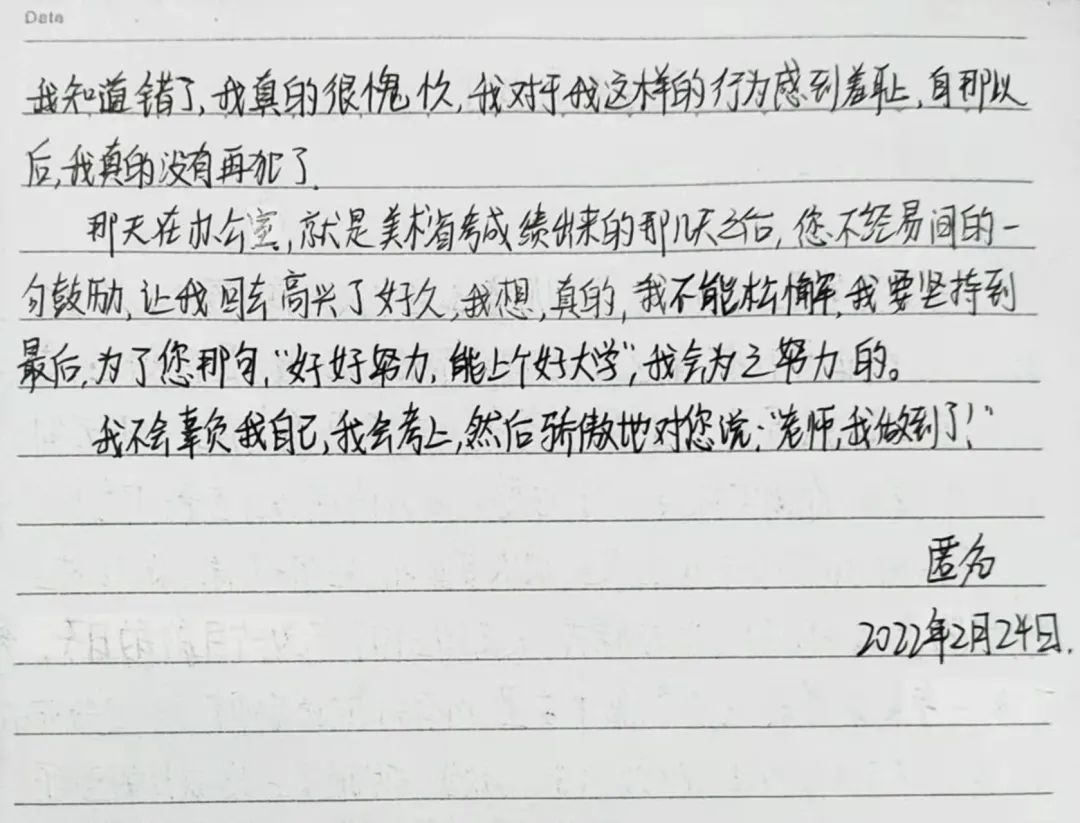 Data
我知道错了,我真的很愧疚,我对于我这样的行为感到羞耻,自那以
后,我真的没有再犯了.
那天在办公室,就是美术省考成绩出来的那几天之后,您不经易间的一
句鼓励,让我回去高兴了好久,我想,真的,我不能松懈,我要坚持到
最后,为了您那句,“好好努力,能上个好大学”,我会为之努力的。
我不会辜负我自己,我会考上,然后骄傲地对您说:“老师,我做到了!”
匿名
2022年2月24日.